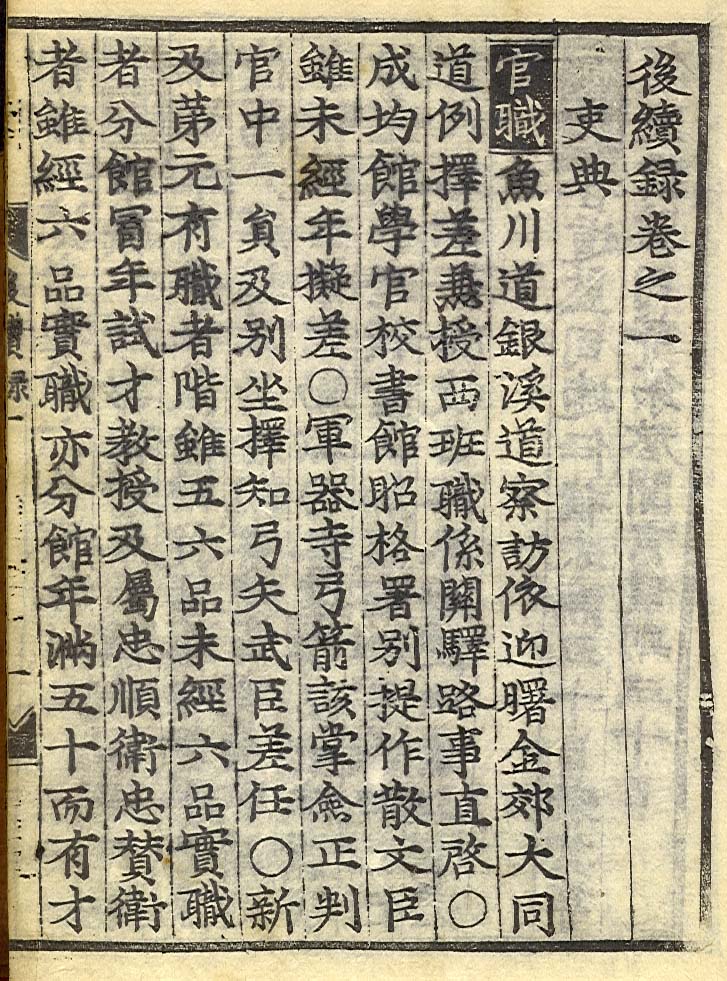 後續録卷之一
吏典
官職魚川道銀溪道察訪依迎曙金郊大同
道例擇差兼授西班職係關驛路事直啓○
成均館學官校書館昭格署別提作散文臣
雖未經年擬差○軍器寺弓箭該掌僉正判
官中一員及別坐擇知弓矢武臣差任○新
及第元有職者階雖五六品未經六品實職
者分館冒年試才教授及屬忠順衛忠贊衛
者雖經六品實職亦分館年滿五十而有才
後續録一